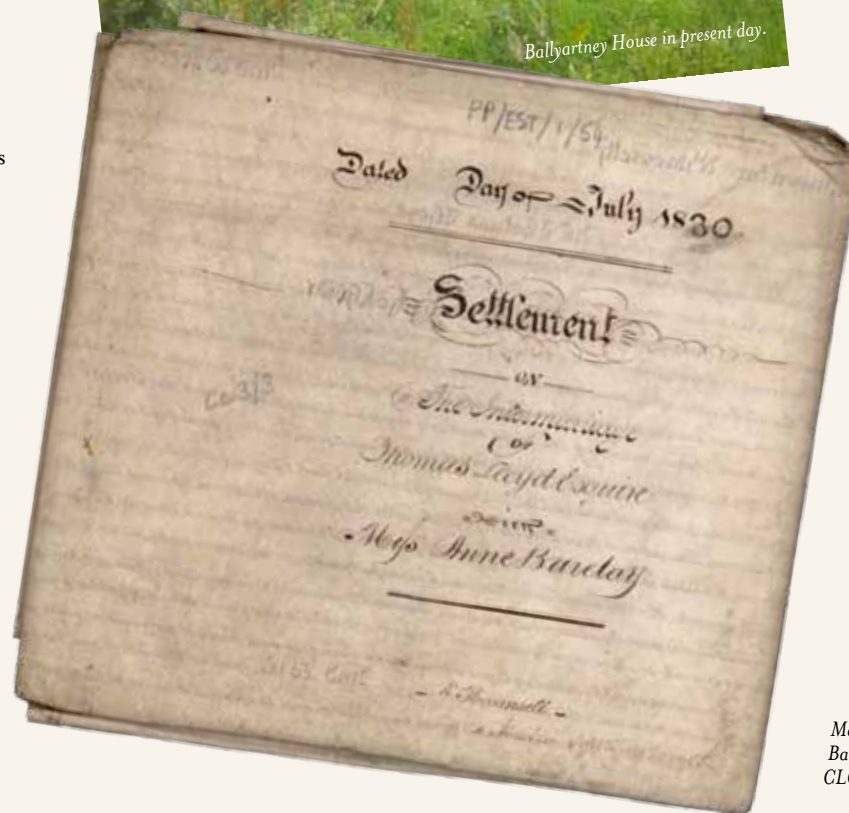 Ballyartney House in present day.
s
PP/EST/1/54
Dated Day of July 1830
Settlement
on
The Intermarriage
of
Thomas Lloyd Esquire
with
Miss Anne Barclay
3/3
Ma
Ba
CLC